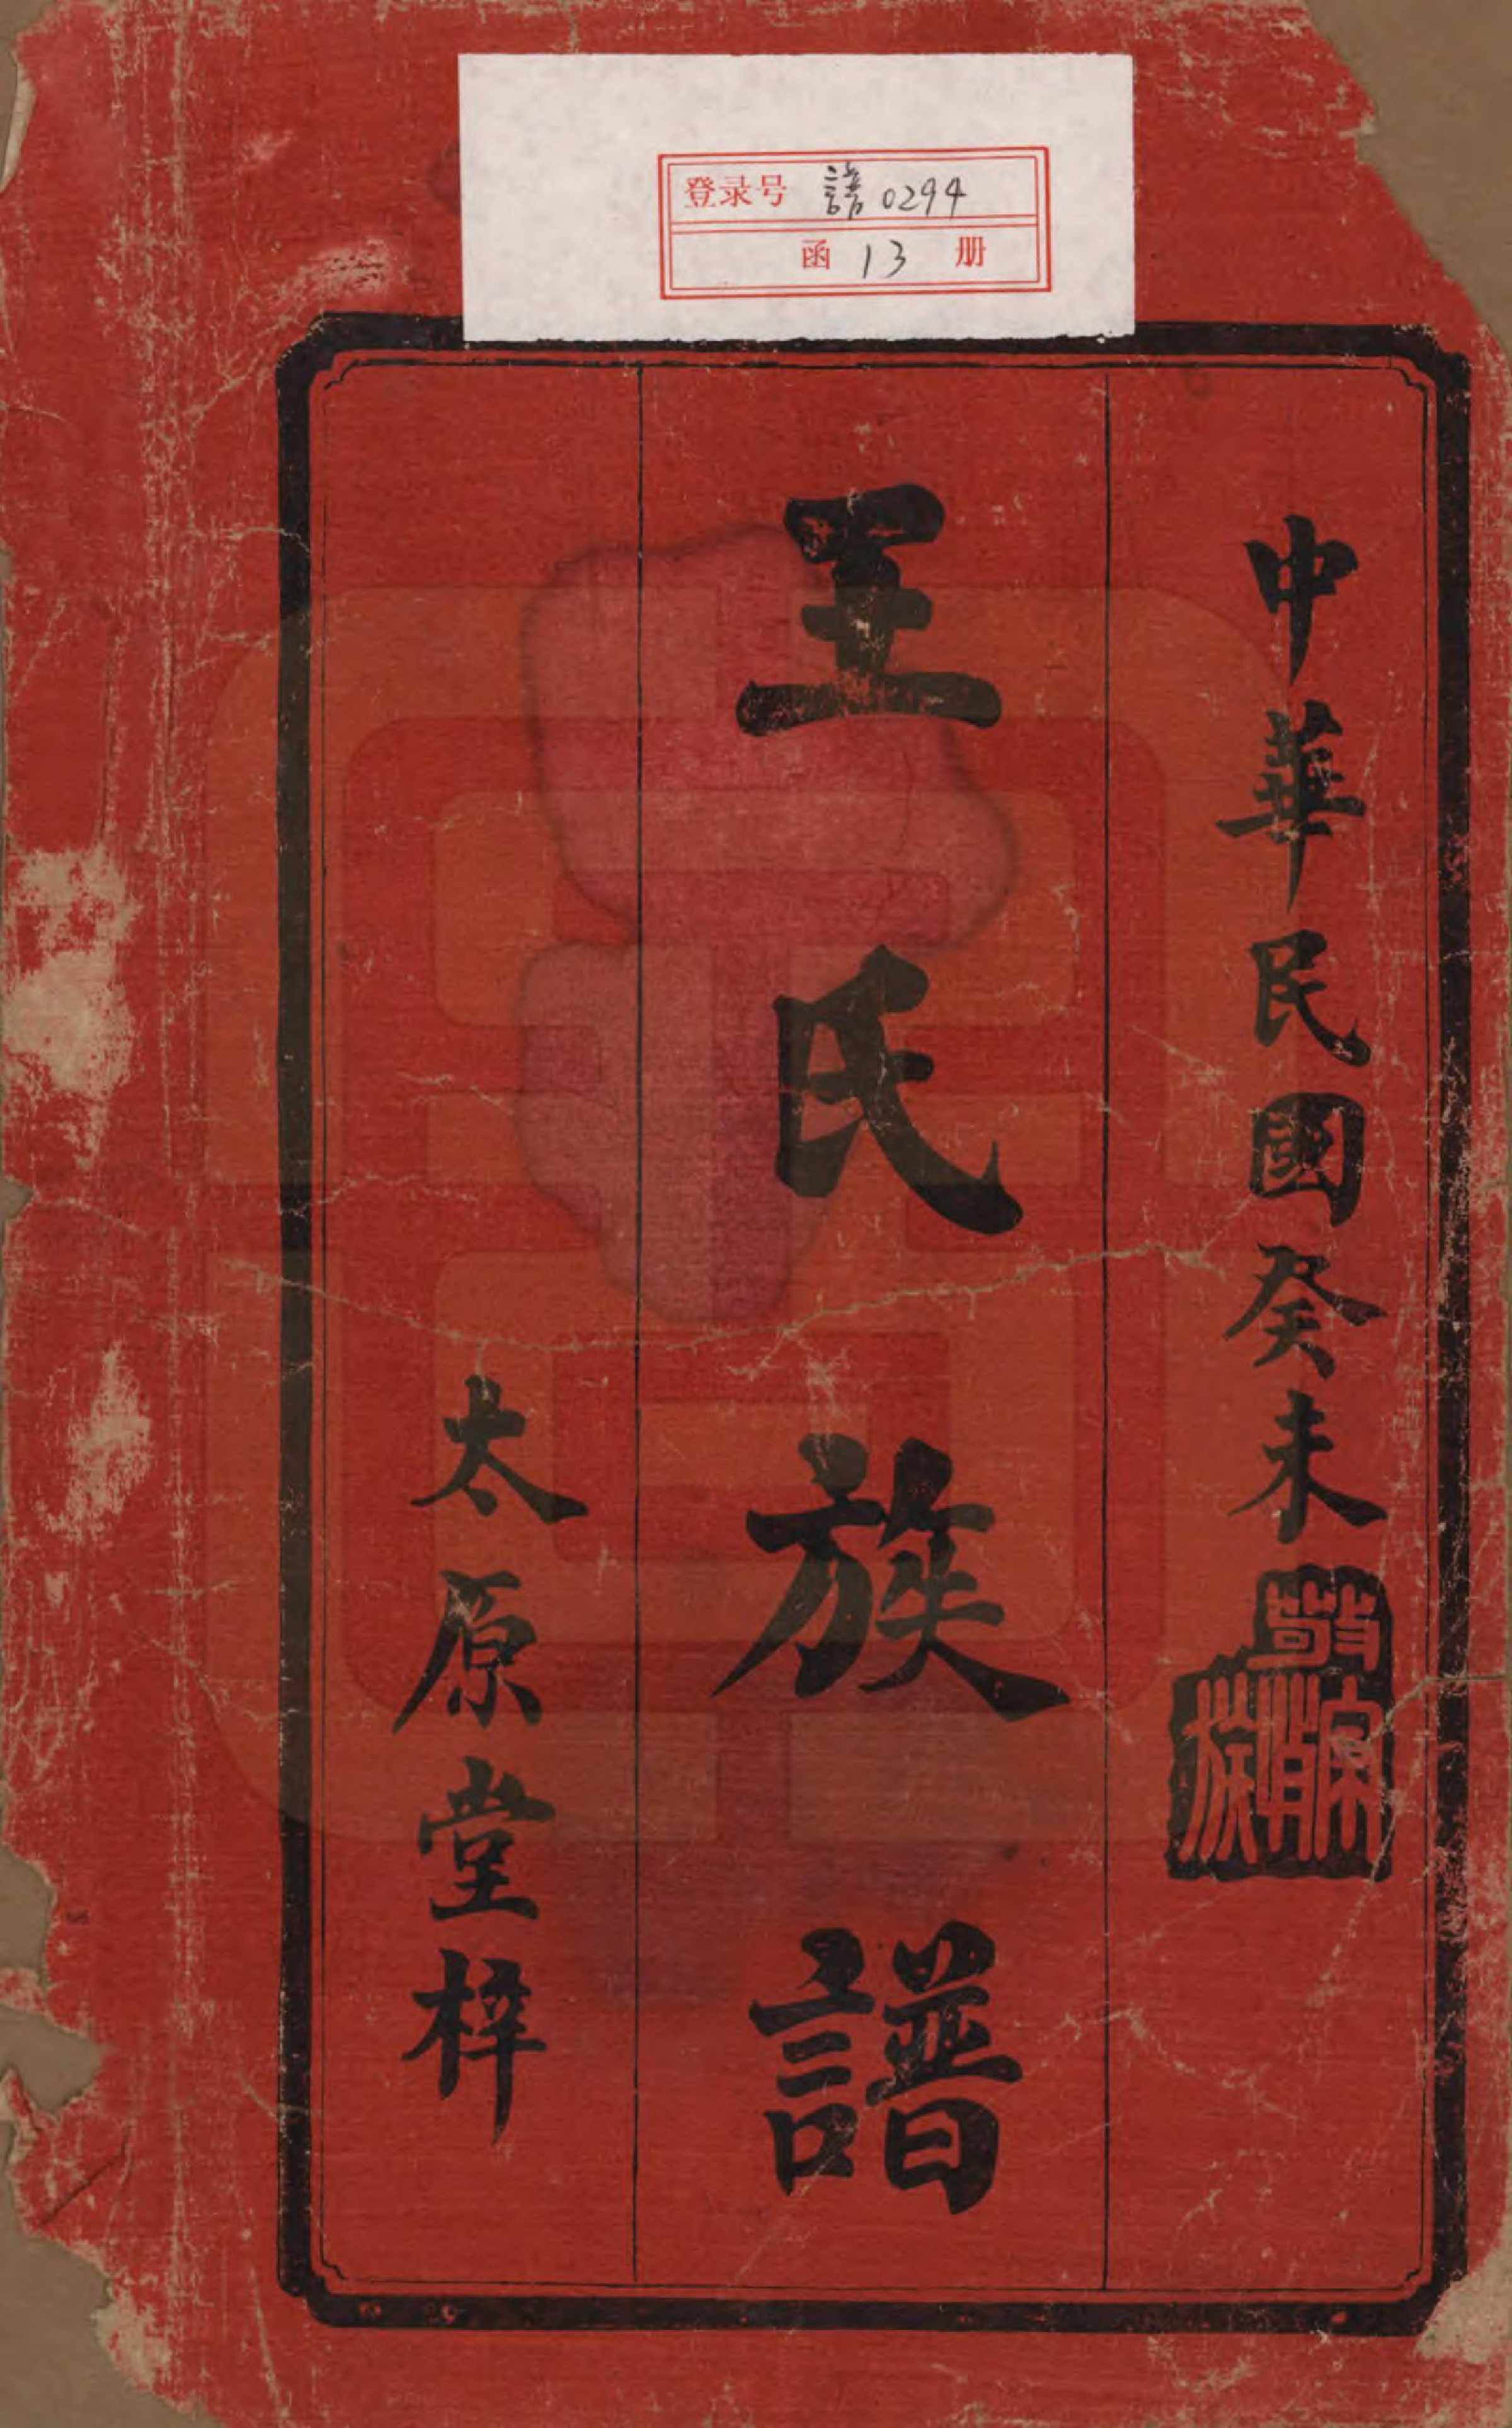 登录号 譜0294
函 13 册
中華民國癸未
敬宗睦族
王氏族譜
太原堂梓